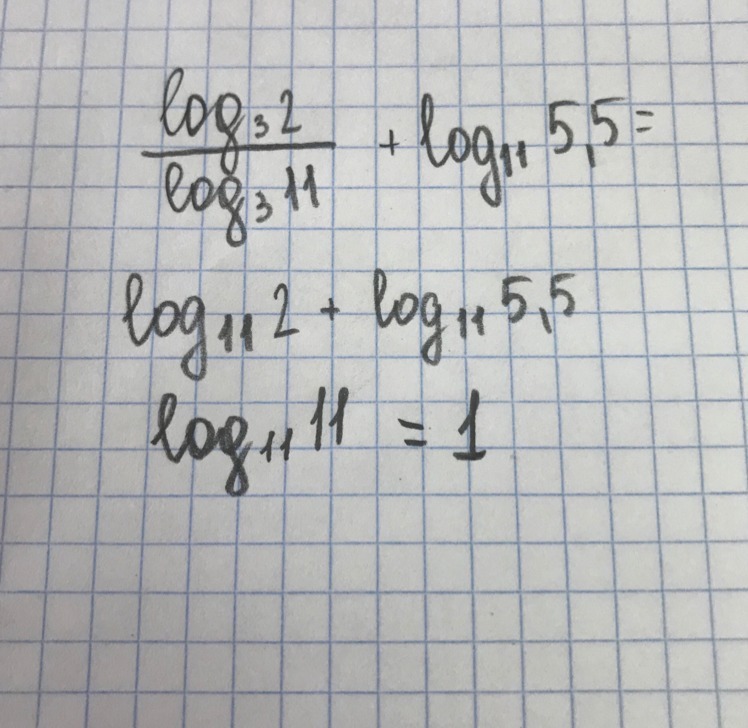 log₃2
—————— + log₁₁ 5,5 =
log₃11
log₁₁2 + log₁₁ 5,5
log₁₁11 = 1